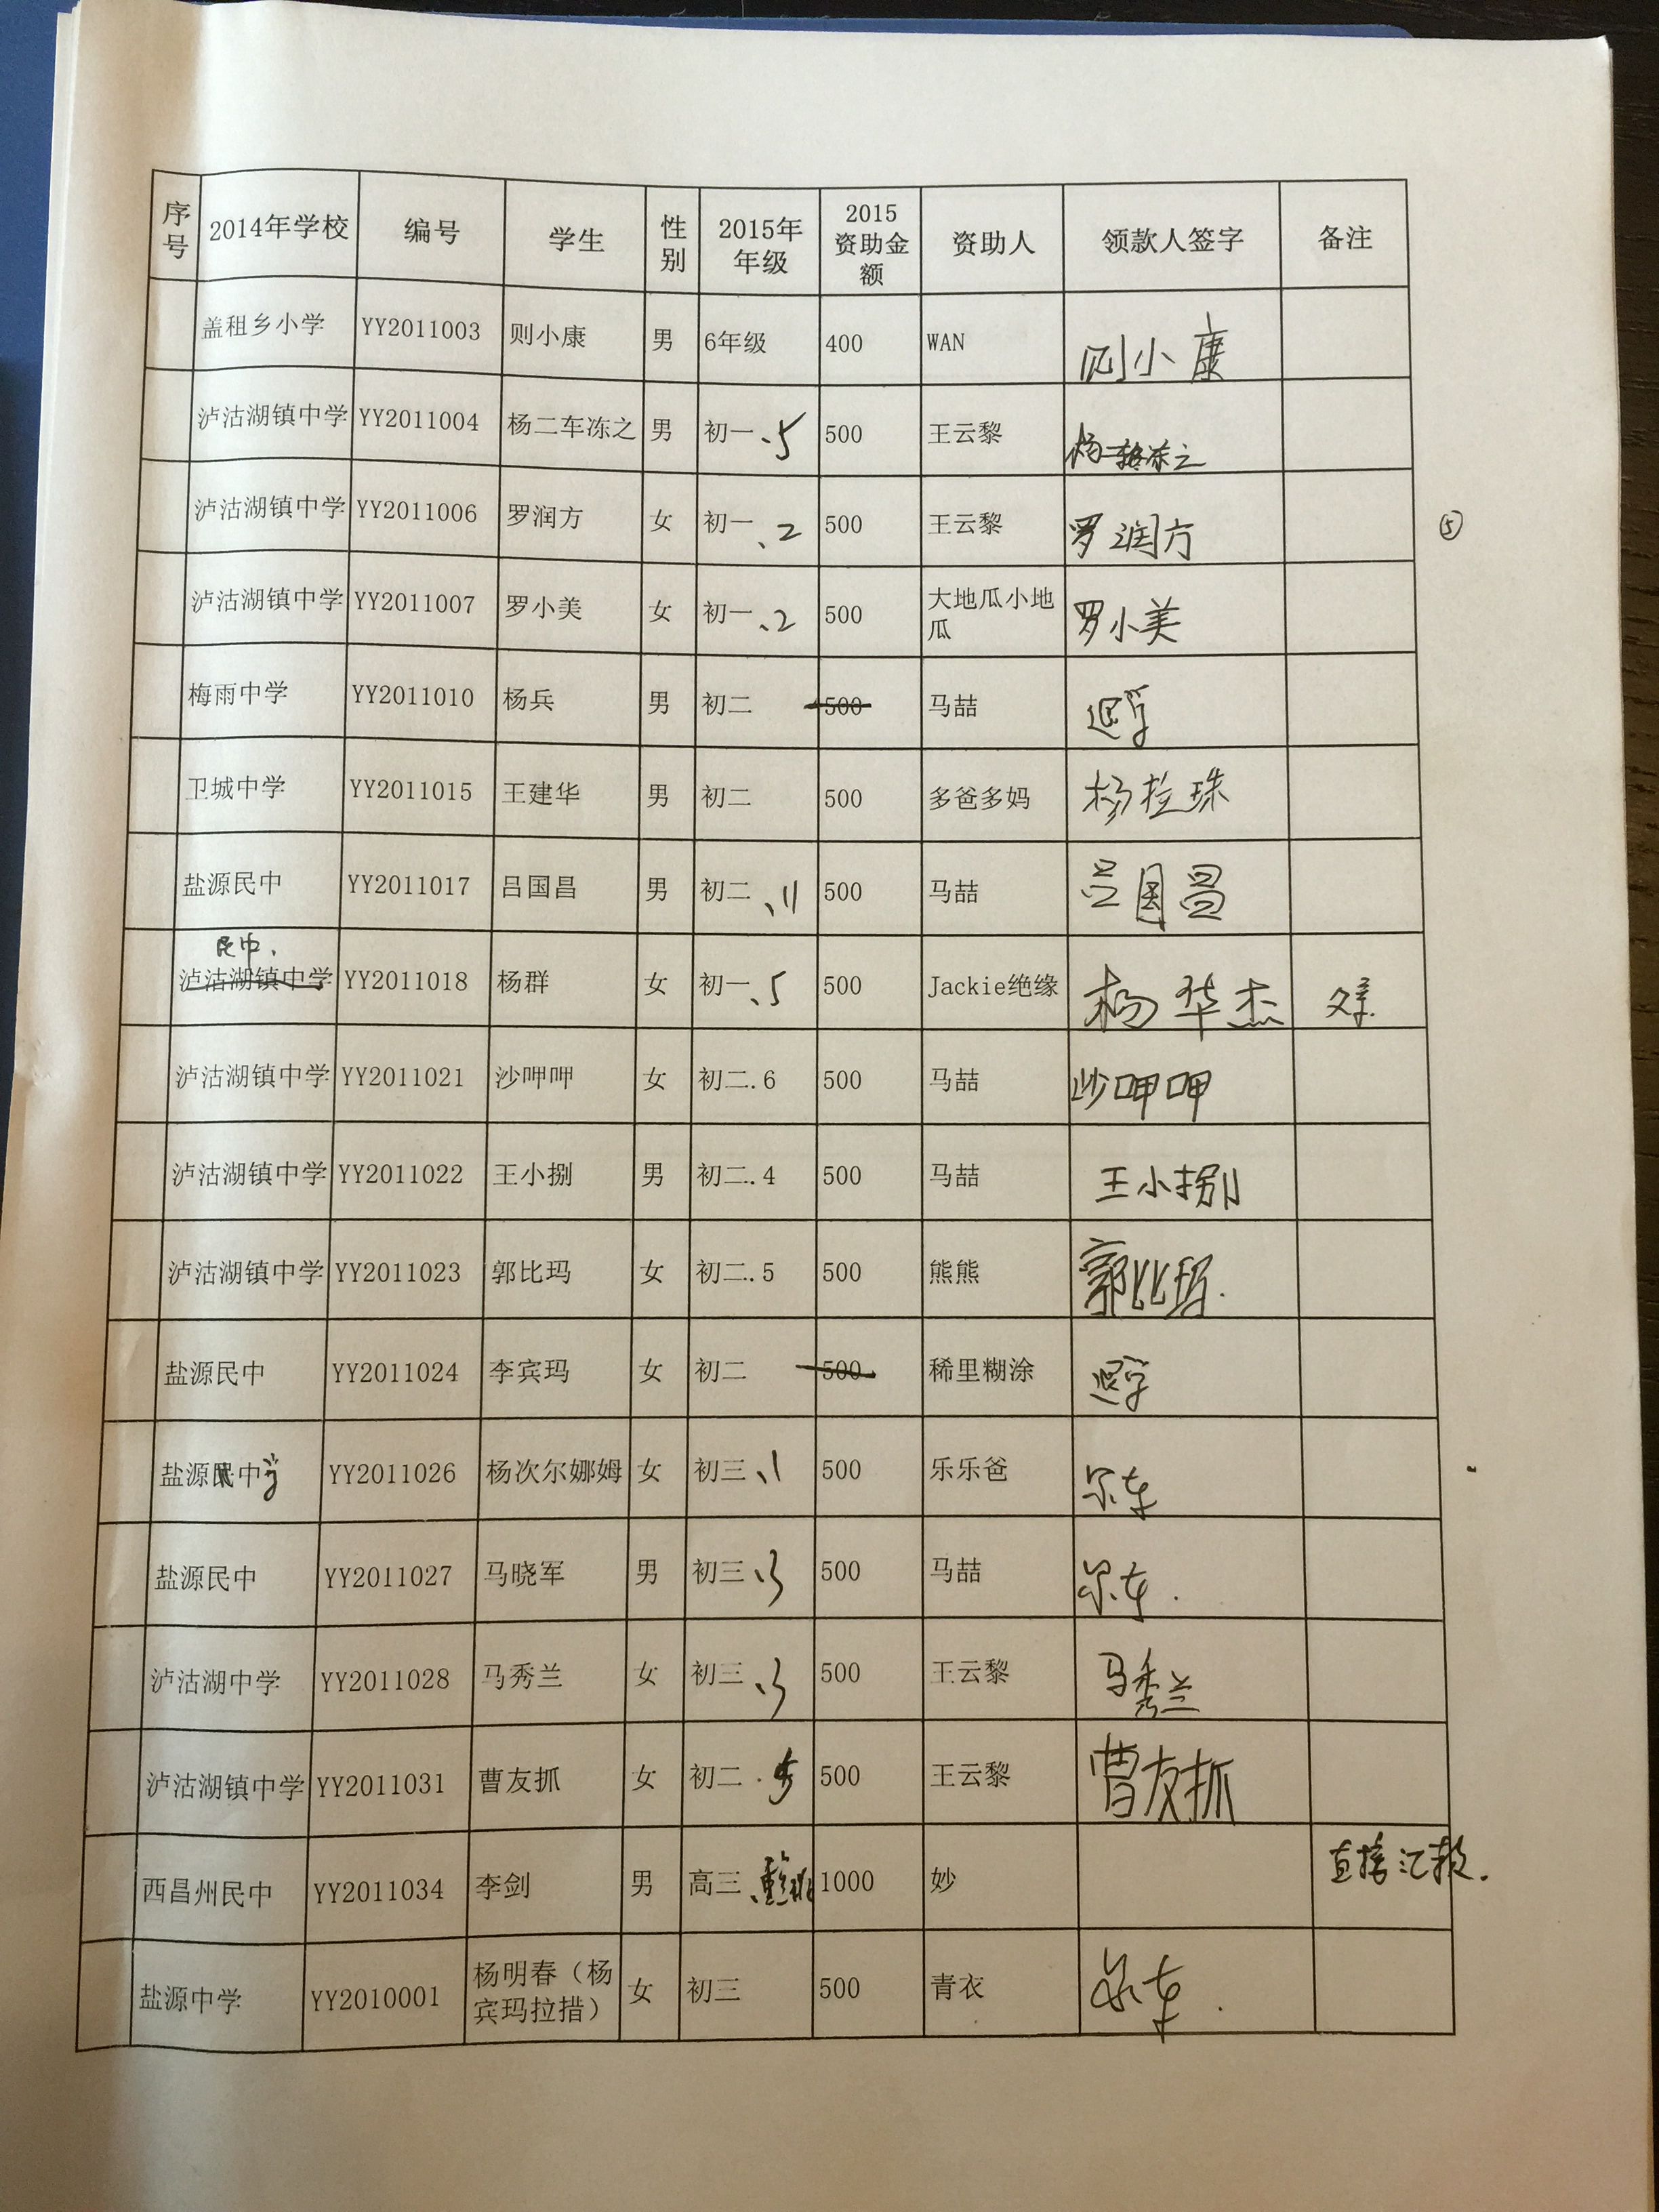 序号 2014年学校 编号 学生 性别 2015年年级 2015资助金额 资助人 领款人签字 备注
盖租乡小学 YY2011003 则小康 男 6年级 400 WAN 则小康
泸沽湖镇中学 YY2011004 杨二车冻之 男 初一、5 500 王云黎 杨二车冻之
泸沽湖镇中学 YY2011006 罗润方 女 初一、2 500 王云黎 罗润方
⑤
泸沽湖镇中学 YY2011007 罗小美 女 初一、2 500 大地瓜小地瓜 罗小美
梅雨中学 YY2011010 杨兵 男 初二 500 马喆 退学
卫城中学 YY2011015 王建华 男 初二 500 多爸多妈
盐源民中 YY2011017 吕国昌 男 初二、11 500 马喆 吕国昌
民中.
泸沽湖镇中学 YY2011018 杨群 女 初一、5 500 Jackie绝缘 杨华杰
泸沽湖镇中学 YY2011021 沙呷呷 女 初二.6 500 马喆 沙呷呷
泸沽湖镇中学 YY2011022 王小捌 男 初二.4 500 马喆 王小捌
泸沽湖镇中学 YY2011023 郭比玛 女 初二.5 500 熊熊 郭比玛.
盐源民中 YY2011024 李宾玛 女 初二 500 稀里糊涂 退学
盐源中学 YY2011026 杨次尔娜姆 女 初三、1 500 乐乐爸 尔车
盐源民中 YY2011027 马晓军 男 初三、3 500 马喆 尔车.
泸沽湖中学 YY2011028 马秀兰 女 初三、3 500 王云黎 马秀兰
泸沽湖镇中学 YY2011031 曹友抓 女 初二.5 500 王云黎 曹友抓
西昌州民中 YY2011034 李剑 男 高三、 1000 妙 直接汇款.
盐源中学 YY2010001 杨明春（杨宾玛拉措） 女 初三 500 青衣 尔车.